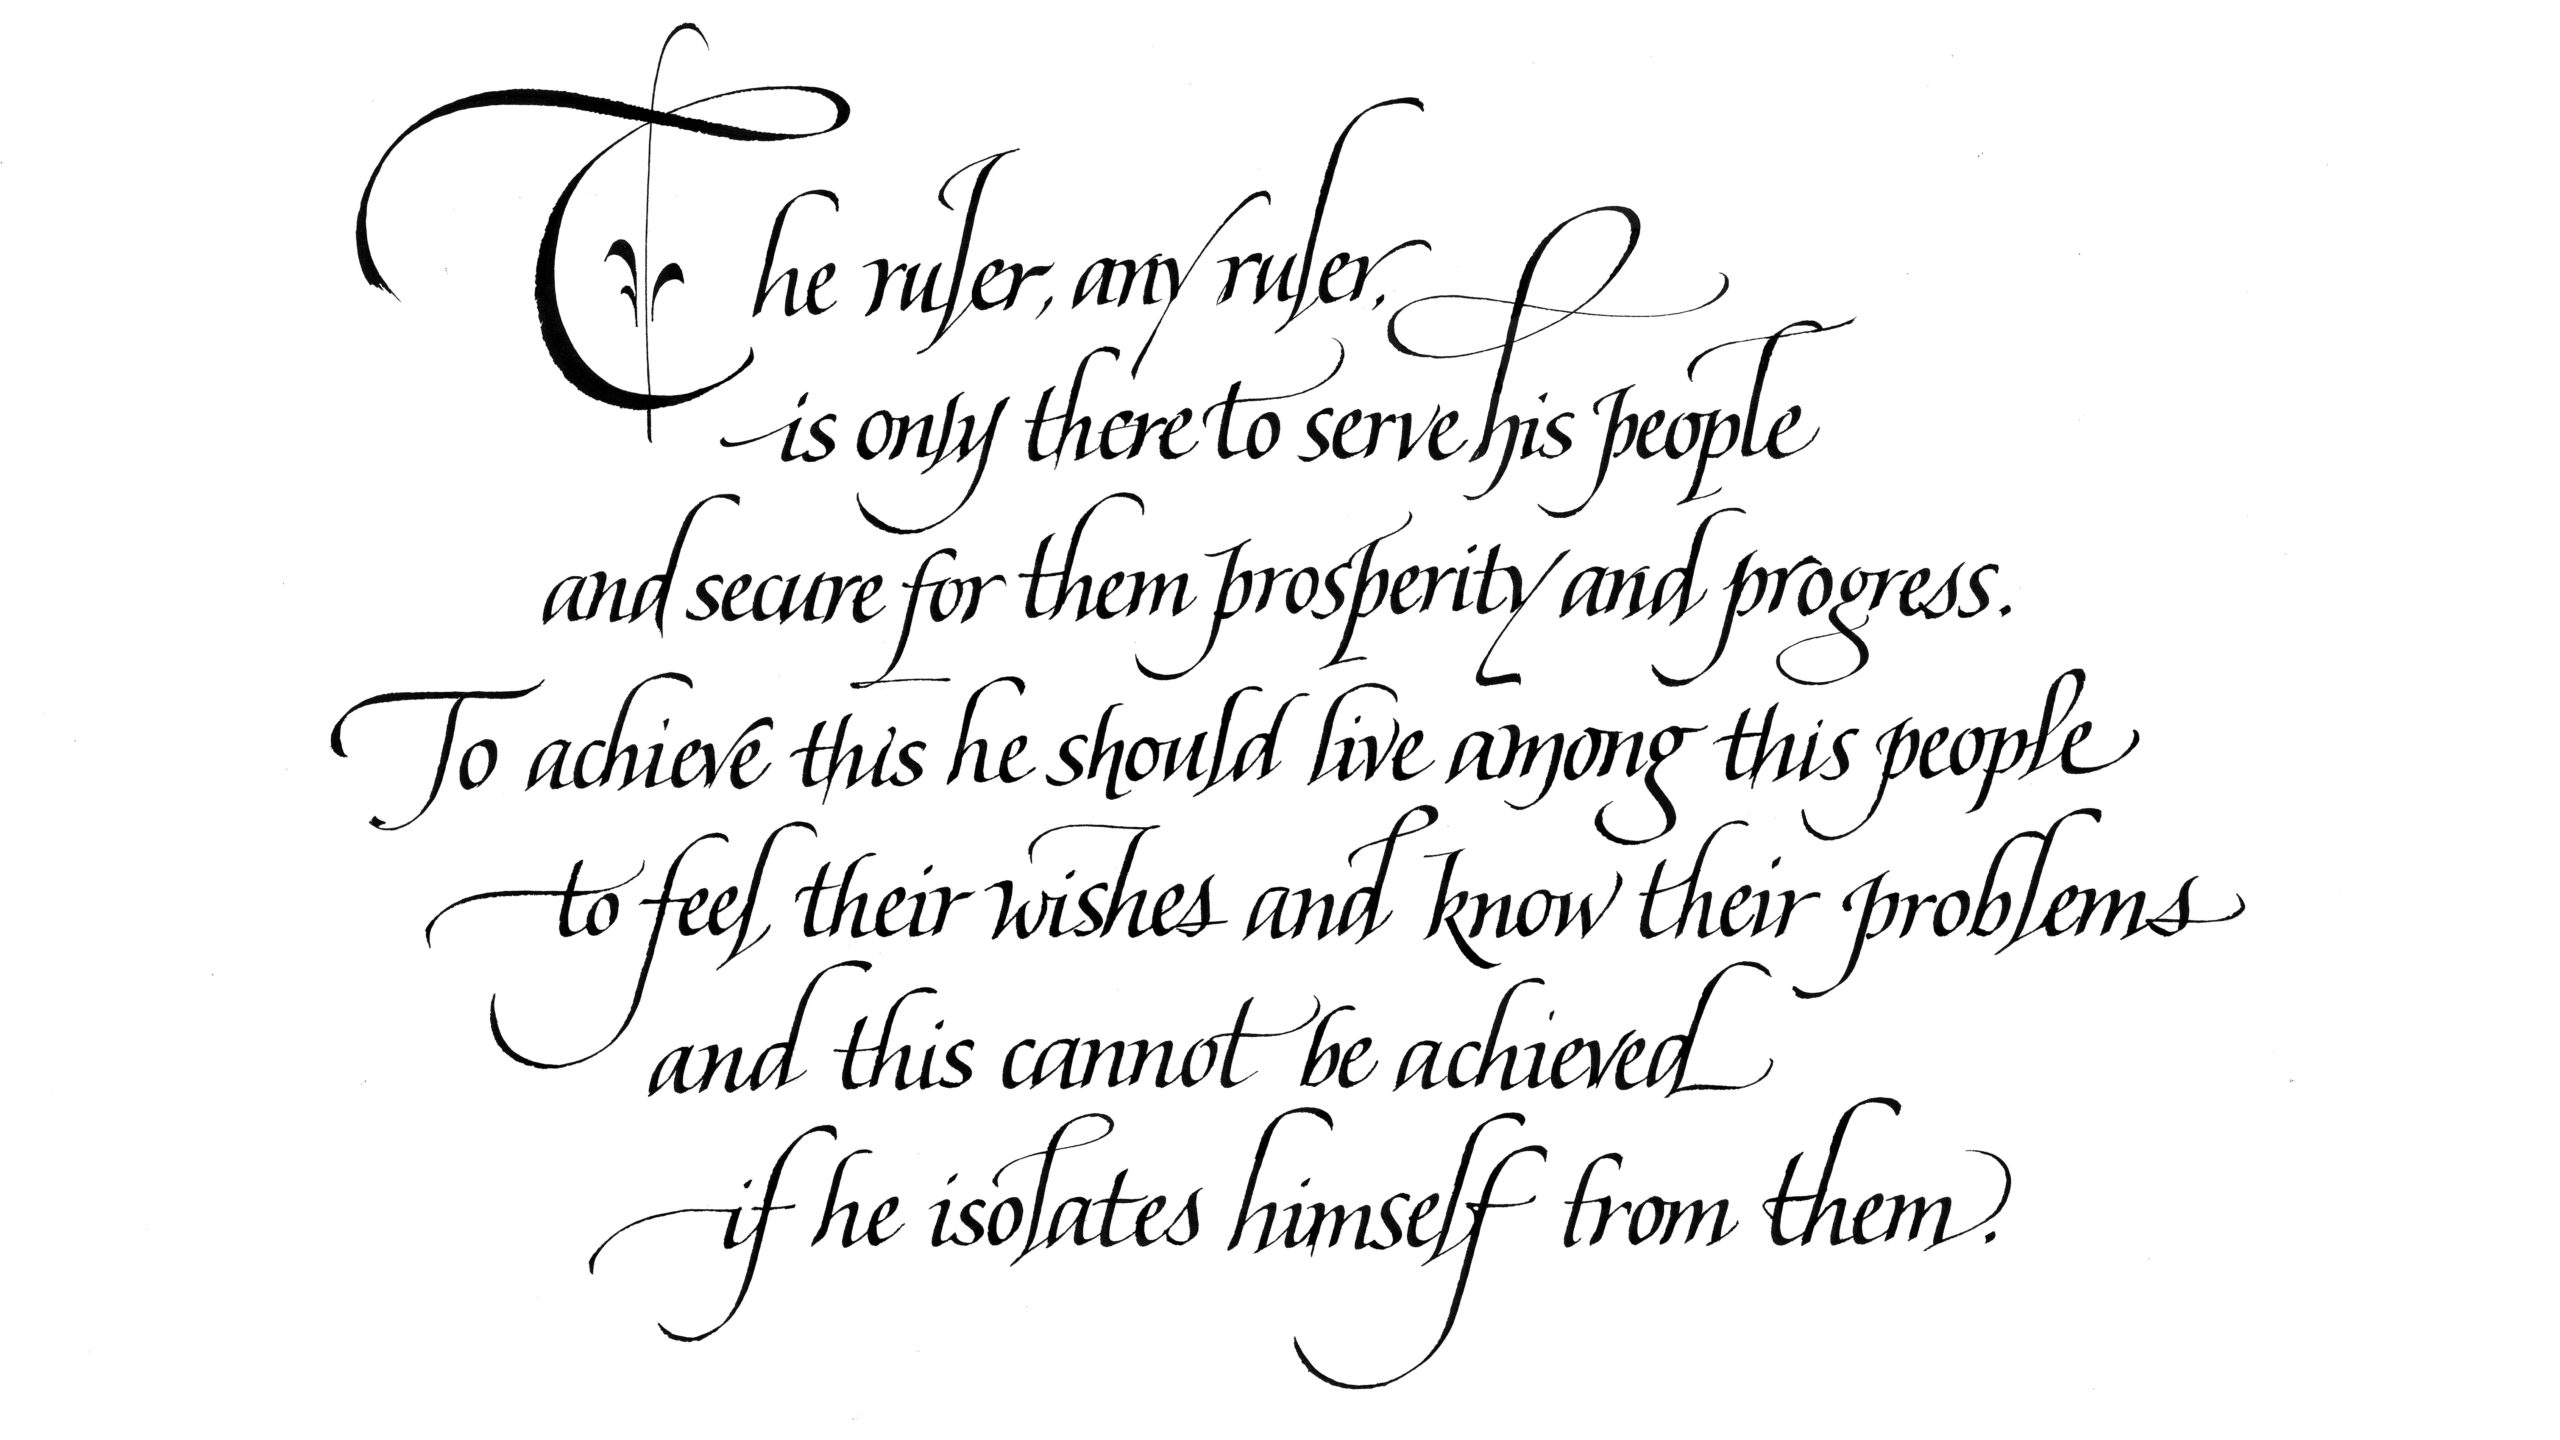 The ruler, any ruler,
is only there to serve his people
and secure for them prosperity and progress.
To achieve this he should live among this people
to feel their wishes and know their problems
and this cannot be achieved
if he isolates himself from them.